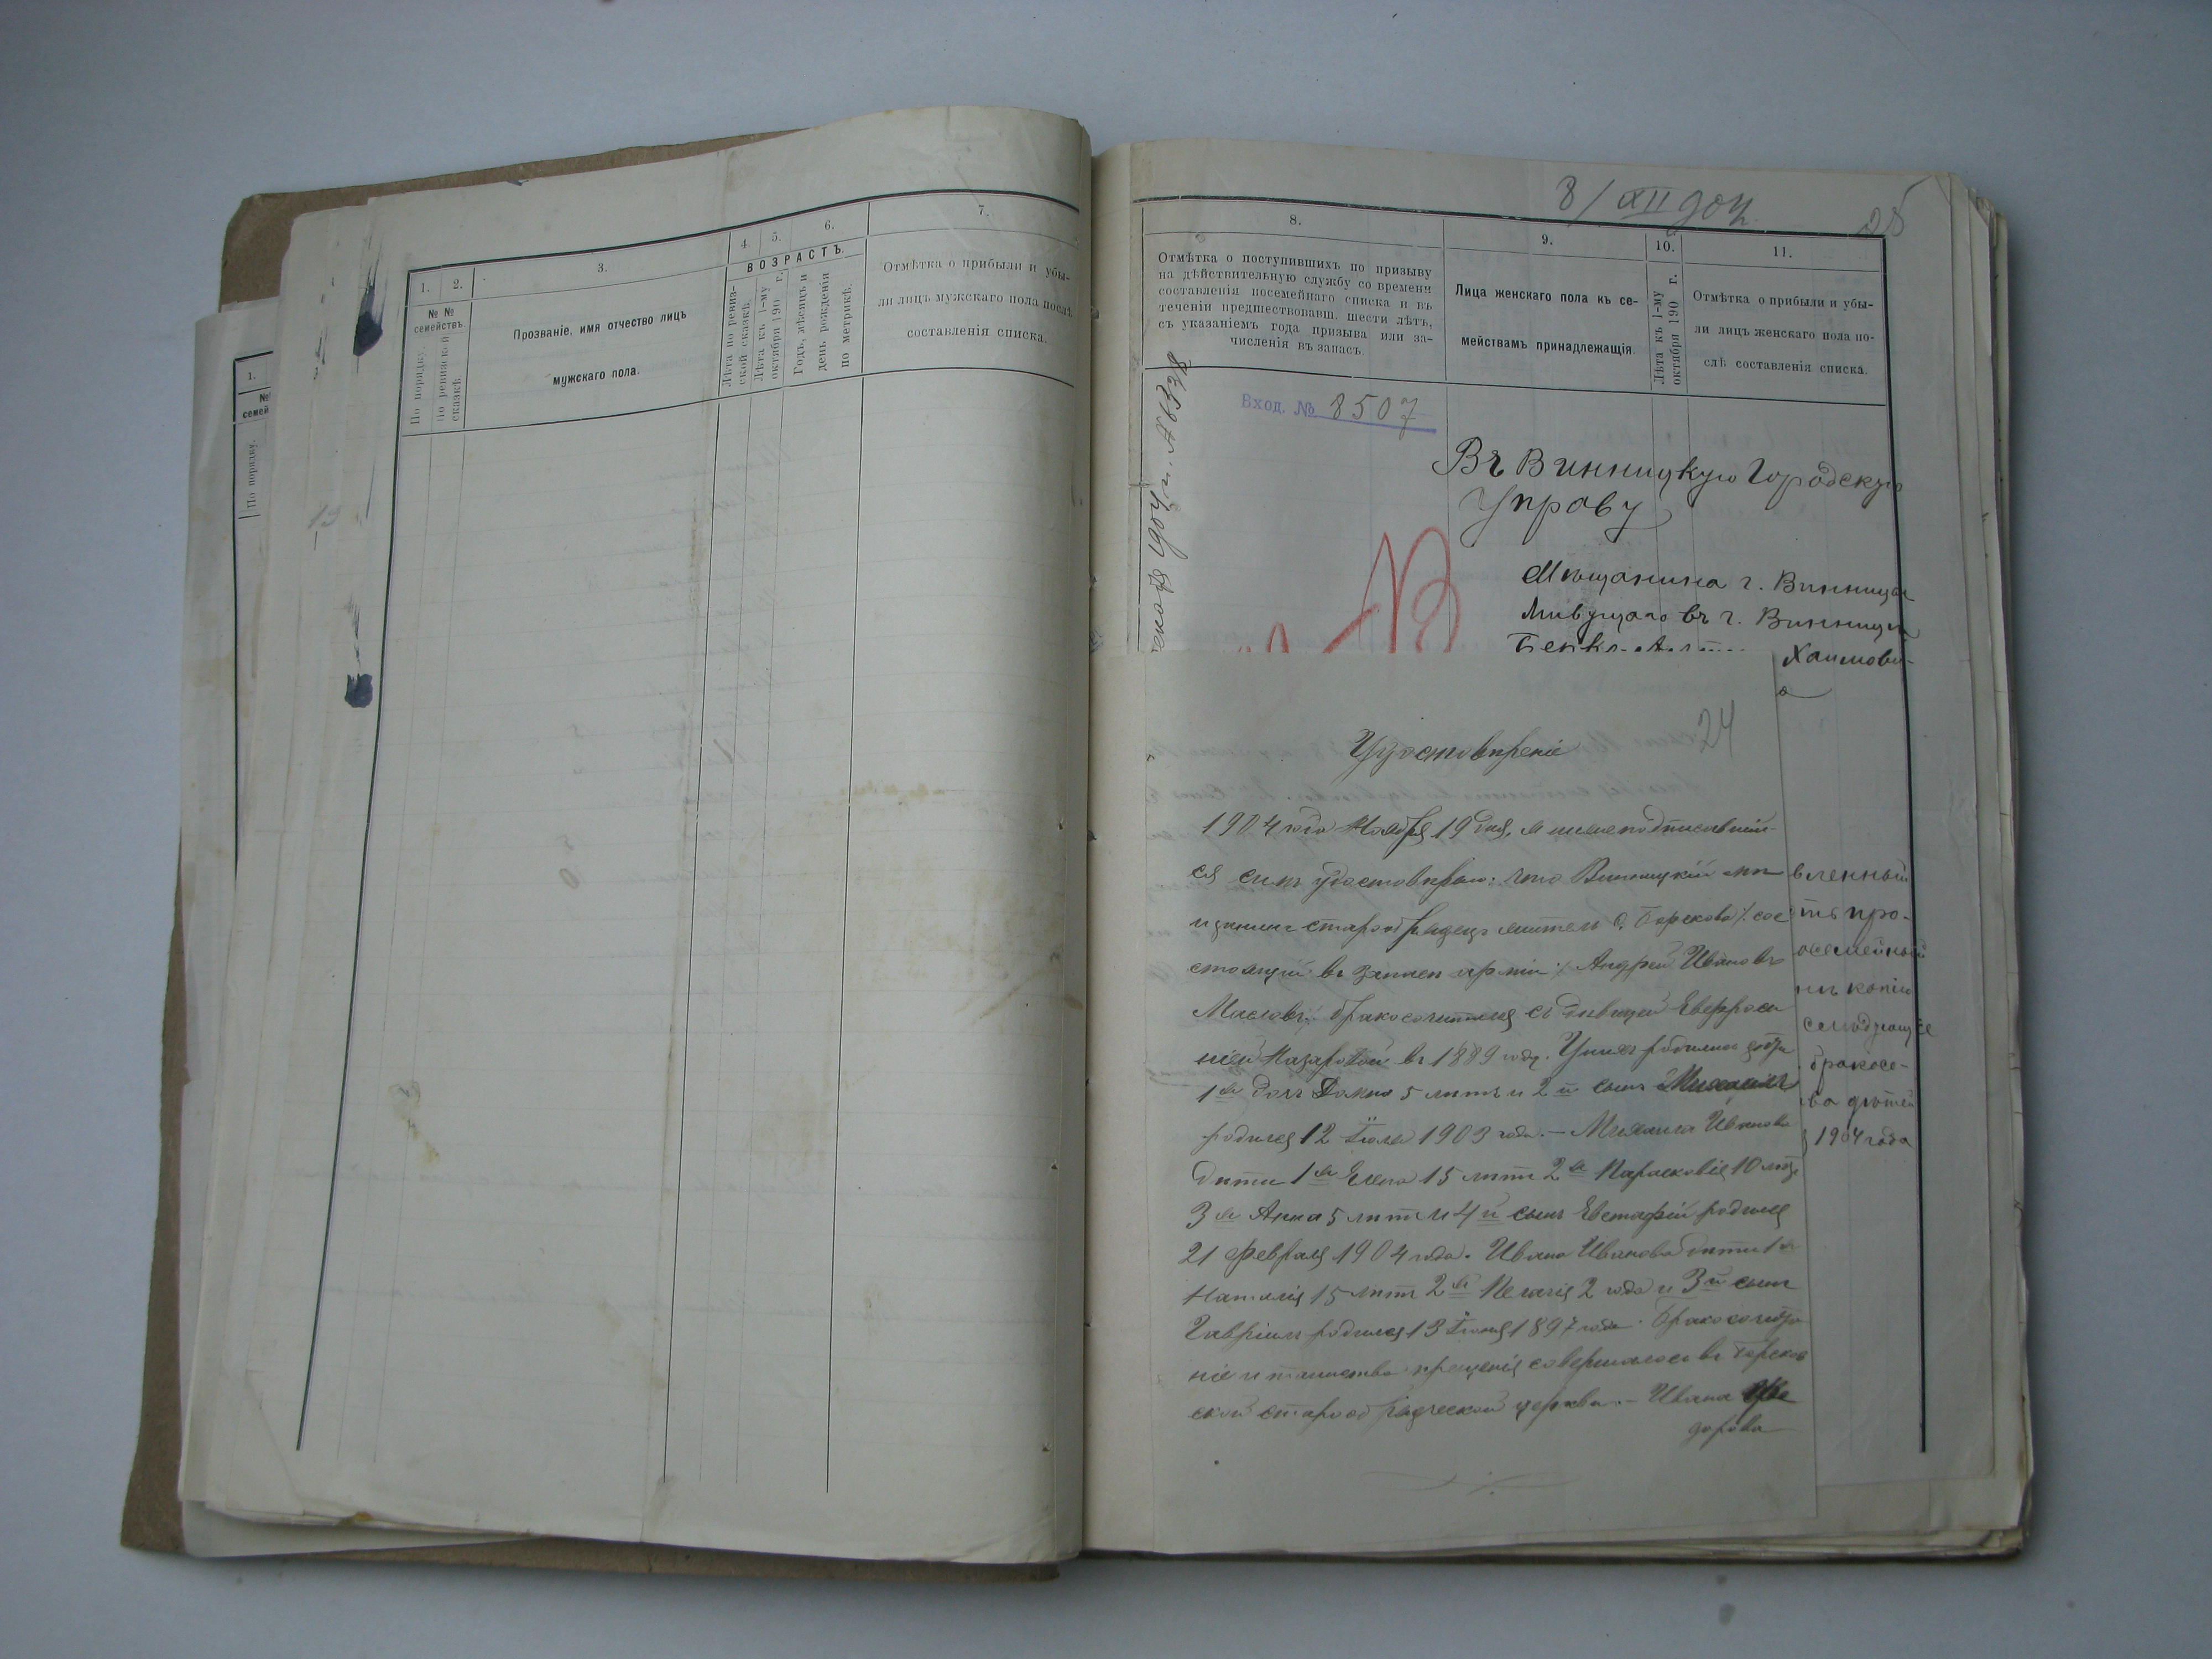 1.
№
семей
По порядку.
13
1.
2.
3.
4.
5.
6.
7.
№ №
семействъ
По порядку.
По ревизской
сказкѣ.
Прозваніе, имя отчество лицъ
мужскаго пола.
ВОЗРАСТЪ.
Лѣта по ревиз-
ской сказкѣ.
Лѣта къ 1-му
октября 190 г.
Годъ, мѣсяцъ и
день рожденія
по метрикѣ.
Отмѣтка о прибыли и убы-
ли лицъ мужскаго пола послѣ
составленія списка.
8/XII 904
25
8.
9.
10.
11.
Отмѣтка о поступившихъ по призыву
на дѣйствительную службу со времени
составленія посемейнаго списка и въ
теченіи предшествовавш. шести лѣтъ,
съ указаніемъ года призыва или за-
численія въ запасъ.
Лица женскаго пола къ се-
мействамъ принадлежащія.
Лѣта къ 1-му
октября 190 г.
Отмѣтка о прибыли и убы-
ли лицъ женскаго пола по-
слѣ составленія списка.
Вход. № 8507
Въ Винницкую Городскую
Управу
Мѣщанина г. Винницы
живущаго въ г. Винницѣ
Хаимови-
а
24
Удостовѣреніе
1904 года Ноября 19 дня, я нижеподписавшій-
ся симъ удостовѣряю: что Винницкій мѣ
щанинъ старообрядецъ житель с. Боркова /. сос
стоящій въ запасѣ арміи ./ Андрей Ивановъ
Масловъ: бракосочитался съ дѣвицей Евфроси
ніей Назаровой въ 1889 году. У нихъ родились дѣти
1я дочь Домна 5 лѣтъ и 2й сынъ Михаилъ
родился 12 Іюля 1903 года. — Михаила Иванова
дѣти 1я Елена 15 лѣтъ 2я Парасковія 10 лѣтъ
3я Анна 5 лѣтъ и 4й сынъ Евстафій родился
21 февраля 1904 года. Ивана Иванова дѣти 1я
Наталія 15 лѣтъ 2я Пелагія 2 года и 3й сынъ
Гавріилъ родился 13 Іюля 1897 года. Бракосочета
ніе и таинство крещенія совершалось въ Борсков
ской старообрядческой церкви. — Ивана Фео
дорова
вленный
ть про-
осемейный
мъ копіи
слѣдующее
бракосо-
ва дѣтей
1904 года